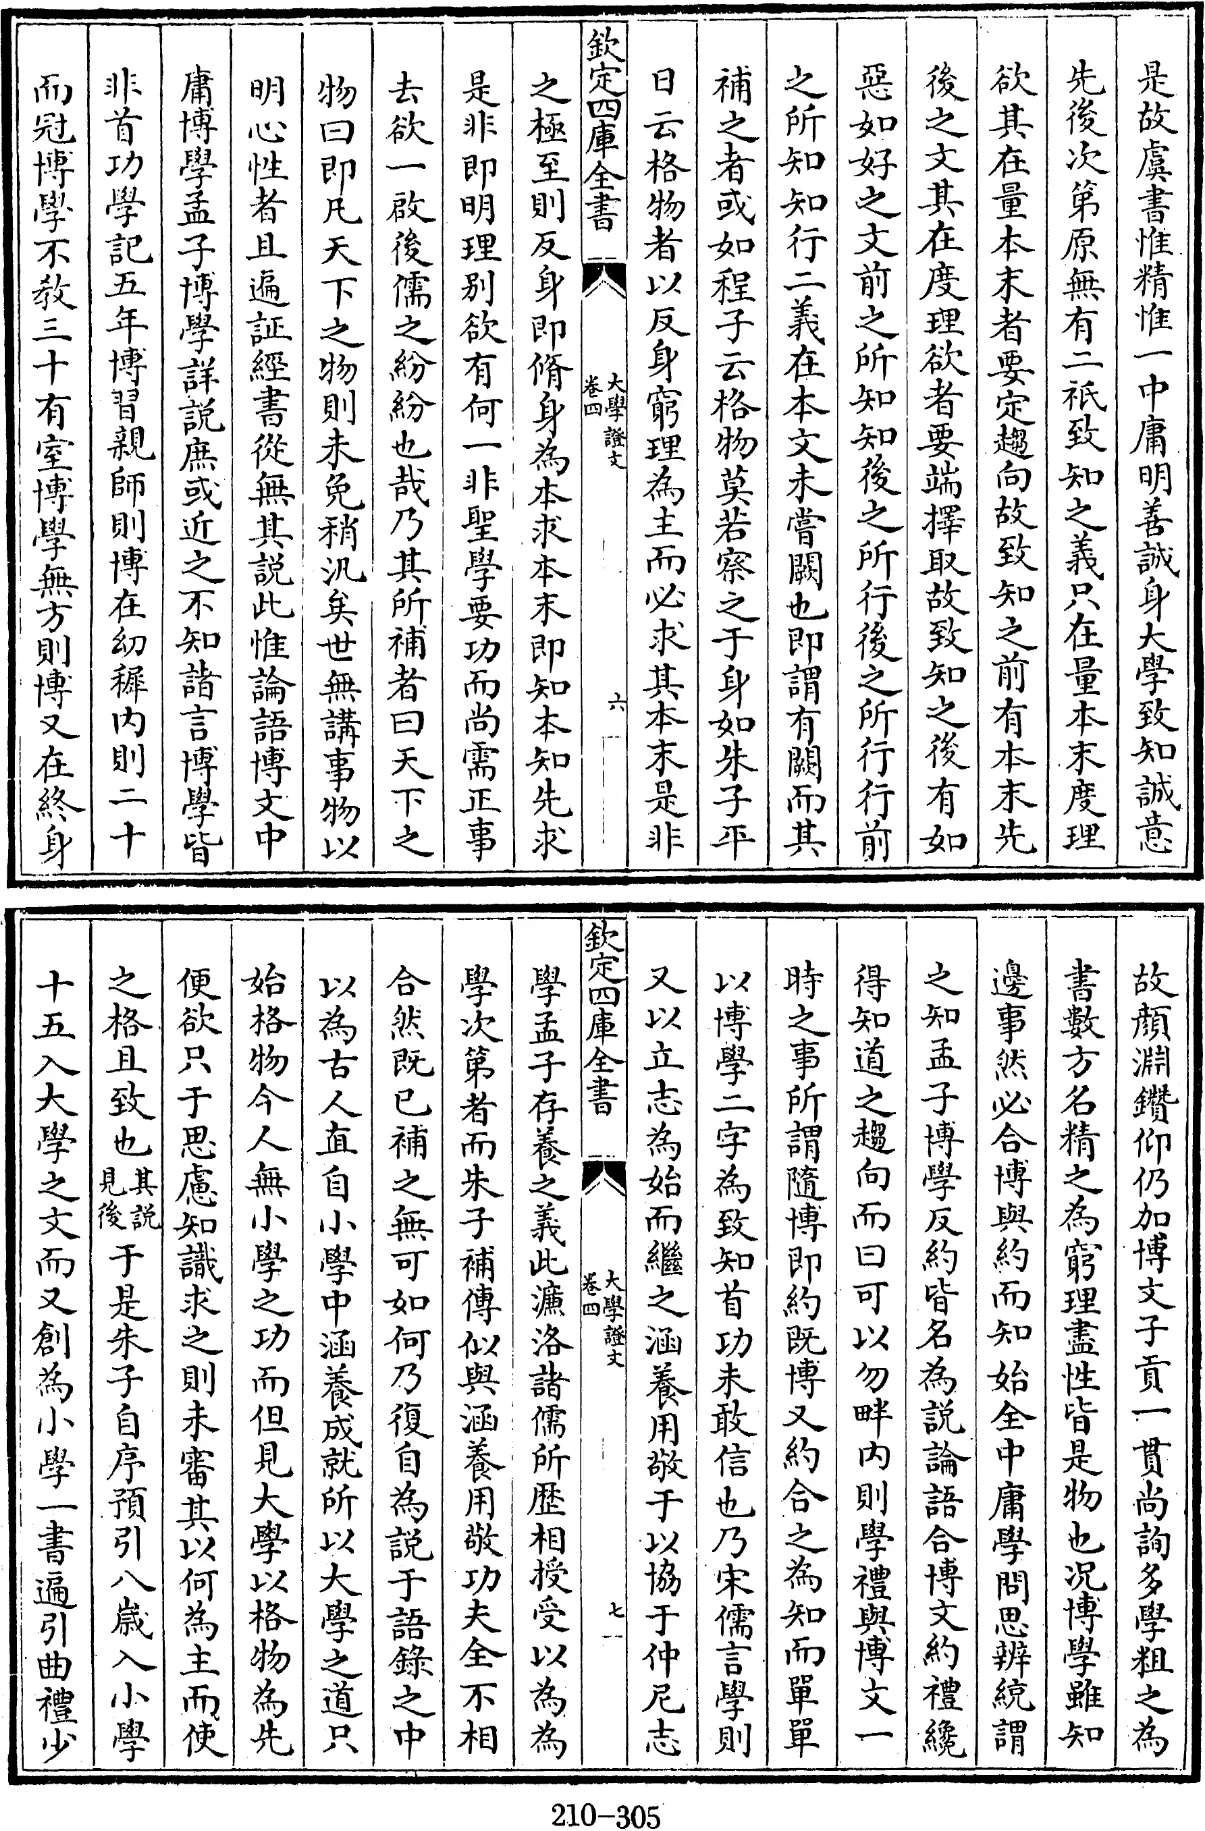 是故虞書惟精惟一中庸明善誠身大學致知誠意
先後次第原無有二祇致知之義只在量本末度理
欲其在量本末者要定趨向故致知之前有本末先
後之文其在度理欲者要端擇取故致知之後有如
惡如好之文前之所知知後之所行後之所行行前
之所知知行二義在本文未嘗闕也即謂有闕而其
補之者或如程子云格物莫若察之于身如朱子平
日云格物者以反身窮理為主而必求其本末是非
欽定四庫全書
大學證文
卷四
六
之極至則反身即脩身為本求本末即知本知先求
是非即明理别欲有何一非聖學要功而尚需正事
去欲一啟後儒之紛紛也哉乃其所補者曰天下之
物曰即凡天下之物則未免稍汎矣世無講事物以
明心性者且遍証經書從無其説此惟論語博文中
庸博學孟子博學詳説庶或近之不知諸言博學皆
非首功學記五年博習親師則博在幼穉内則二十
而冠博學不教三十有室博學無方則博又在終身
故顔淵鑽仰仍加博文子貢一貫尚詢多學粗之為
書數方名精之為窮理盡性皆是物也况博學雖知
邊事然必合博與約而知始全中庸學問思辨統謂
之知孟子博學反約皆名為説論語合博文約禮纔
得知道之趨向而曰可以勿畔内則學禮與博文一
時之事所謂隨博即約既博又約合之為知而單單
以博學二字為致知首功未敢信也乃宋儒言學則
又以立志為始而繼之涵養用敬于以協于仲尼志
欽定四庫全書
大學證文
卷四
七
學孟子存養之義此濂洛諸儒所歴相授受以為為
學次第者而朱子補傳似與涵養用敬功夫全不相
合然既已補之無可如何乃復自為説于語錄之中
以為古人直自小學中涵養成就所以大學之道只
始格物今人無小學之功而但見大學以格物為先
便欲只于思慮知識求之則未審其以何為主而使
之格且致也其説見後于是朱子自序預引八歲入小學
十五入大學之文而又創為小學一書遍引曲禮少
210-305